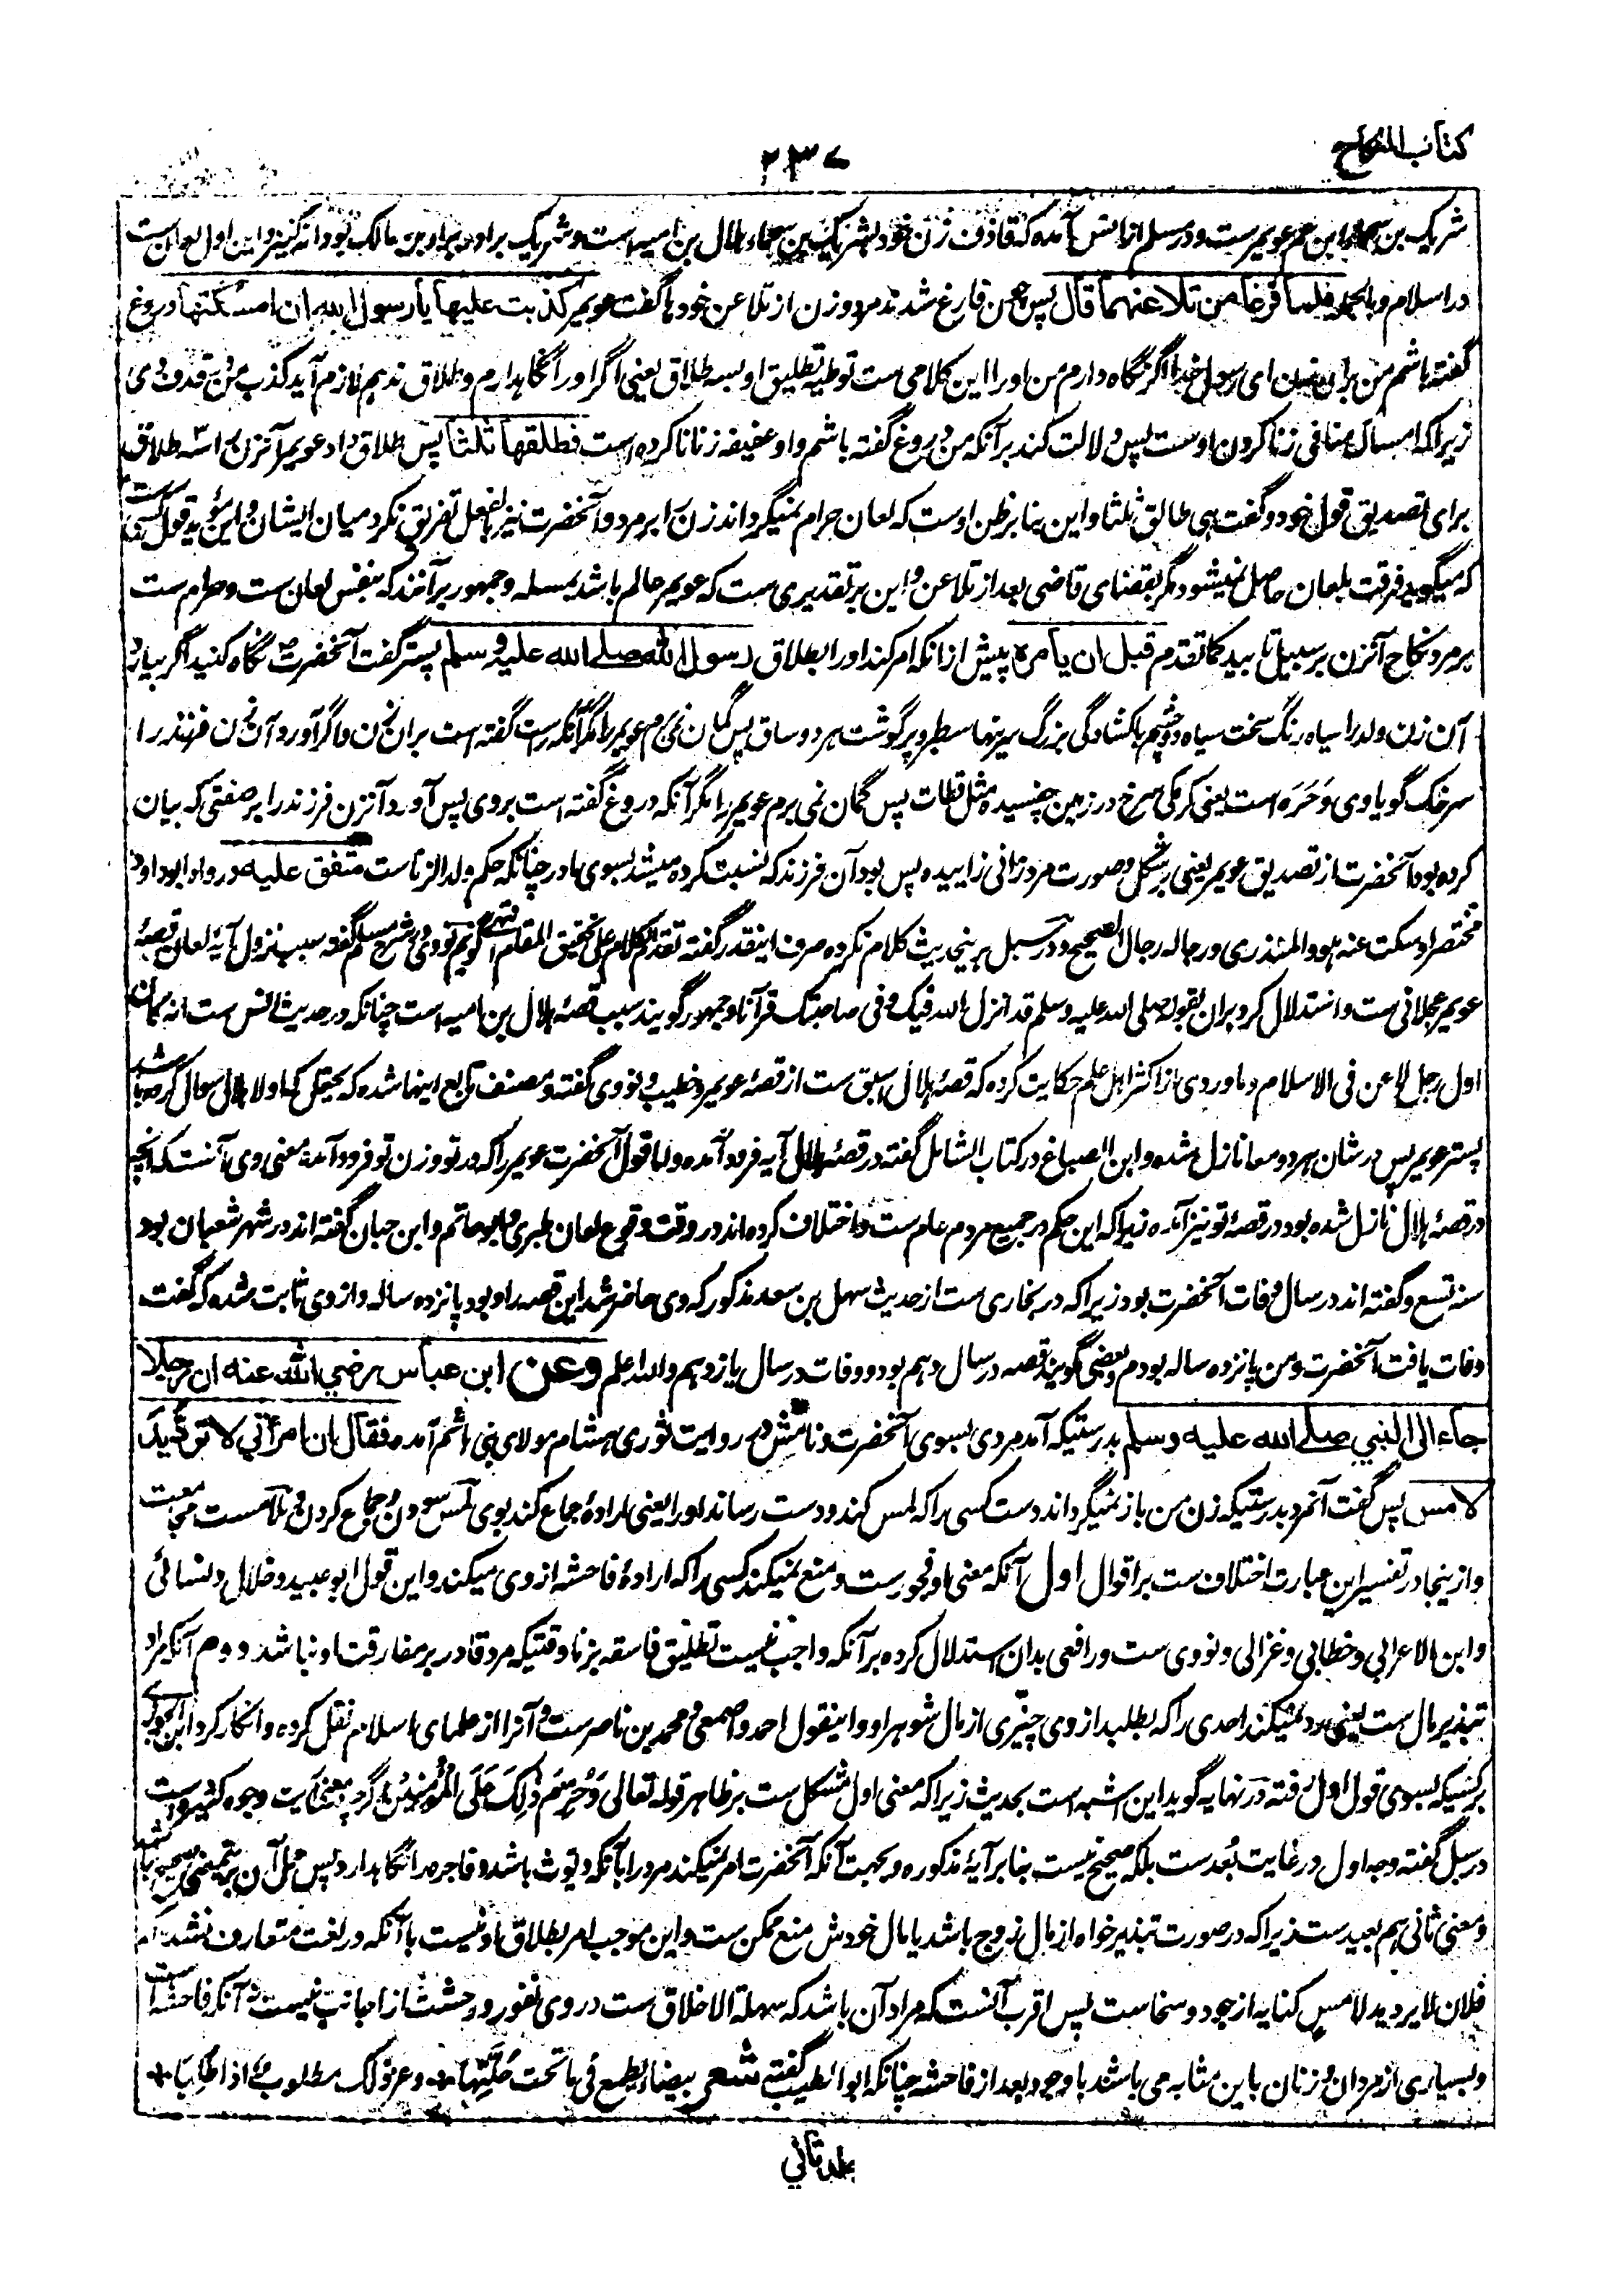 کتاب النکاح
۲۳۷
شریک بن سحماء ابن عم عویمرست و در مسلم از انس آمده که قاذف زن خود بشریک بن سحماء هلال بن امیه است و شریک برادر براء بن مالک بود انه کنیز و این اول لعان ست
در اسلام و بالجمله فلما فرغا من تلاعنهما قال پس چون فارغ شدند مرد و زن از تلاعن خودها گفت عویمر کذبت علیها یا رسول الله ان امسکتها دروغ
گفته باشم من بران زن ای رسول خدا اگر نگاه دارم من او را این کلامی ست توطیه تطلیق او بسه طلاق یعنی اگر او را نگاهدارم و طلاق ندهم لازم آید کذب من در قذف وی
زیرا که امساک منافی زنا کردن اوست پس دلالت کند برآنکه من دروغ گفته باشم و او عفیفه زنا نا کرده است فطلقها ثلثا پس طلاق داد عویمر آنزن را سه طلاق
برای تصدیق قول خود و گفت هی طالق ثلثا و این بنا برظن اوست که لعان حرام نمیگرداند زن را بر مرد و آنحضرت نیز بالفعل تفریق نکرد میان ایشان و این مؤید قول کسی ست
که میگوید فرقت بلعان حاصل نمیشود مگر بقضای قاضی بعد از تلاعن و این بر تقدیری ست که عویمر عالم باشد بمسله و جمهور برآنند که بنفس لعان ست و حرام ست
بر مرد نکاح آنزن بر سبیل تابید کما تقدم قبل ان یأمره پیش ازانکه امر کند او را بطلاق رسول الله صلے الله علیه و سلم پستر گفت آنحضرت ص نگاه کنید اگر بیارد
آن زن ولد را سیاه رنگ سخت سیاه دو چشم باکشادگی بزرگ سرینها سطبر و پرگوشت هر دو ساق پس گمان نمی برم عویمر را مگر آنکه راست گفته است بران زن و اگر آورد آن زن فرزند را
سرخک گویا وی وَحَرَه است یعنی کرمکی سرخ در زمین چفسیده مثل قطات پس گمان نمی برم عویمر را مگر آنکه دروغ گفته است بروی پس آورد آنزن فرزند را بر صفتی که بیان
کرده بود آنحضرت از تصدیق عویمر یعنی بر شکل و صورت مرد زانی زاییده پس بود آن فرزند که نسبت کرده میشد بسوی مادر چنانکه حکم ولد الزناست متفق علیه و رواه ابو داود
مختصرا و سکت عنه هو و المنذری و رجاله رجال الصحیح و در سبل برینحدیث کلام نکرده صرف اینقدر گفته تقدم الکلام علی تحقیق المقام انتهی گویم نووی در شرح مسلم گفته سبب نزول آیهٔ لعان قصهٔ
عویمر عجلانی ست و استدلال کرد بران بقوله صلی الله علیه و سلم قد انزل الله فیک و فی صاحبتک قرآنا و جمهور گویند سبب قصهٔ هلال بن امیه است چنانکه در حدیث انس ست انه کان
اول رجل لاعن فی الاسلام و ماوردی از اکثر اهل علم حکایت کرده که قصهٔ هلال اسبق ست از قصهٔ عویمر و خطیب و نووی گفته و مصنف تابع اینها شده که یحتمل که اولا هلال سوال کرده باشد
پستر عویمر پس در شان هردو معا نازل شده و ابن الصباغ در کتاب الشامل گفته در قصهٔ هلال آیه فرود آمده و اما قول آنحضرت عویمر را که در تو و زن تو فرود آمده معنی وی آنست که آنچه
در قصهٔ هلال نازل شده بود در قصهٔ تو نیز آمده زیرا که این حکم در جمیع مردم عام ست و اختلاف کرده اند در وقت وقوع لعان طبری و ابو حاتم و ابن حبان گفته اند در شهر شعبان بود
سنه تسع و گفته اند در سال وفات آنحضرت بود زیرا که در بخاری ست از حدیث سهل بن سعد مذکور که وی حاضر شد این قصه را و بود پانزده ساله و از وی ثابت شده که گفت
وفات یافت آنحضرت و من پانزده ساله بودم و بعضی گویند قصه در سال دهم بود و وفات در سال یازدهم و الله اعلم وعن ابن عباس رضي الله عنه ان رجلا
جاء الی النبي صلے الله علیه وسلم بدرستیکه آمد مردی بسوی آنحضرت و نامش در روایت ثوری هشام مولای بنی هاشم آمده فقال ان امرأتي لا ترد ید
لامس پس گفت آنمرد بدرستیکه زن من باز نمیگرداند دست کسی را که لمس کند و دست رساند او را یعنی ارادهٔ جماع کند بوی لمس سودن و جماع کردن و ملامست مجامعت
و ازینجا در تفسیر این عبارت اختلاف ست بر اقوال اول آنکه معنی او فجورست و منع نمیکند کسی را که ارادهٔ فاحشه از وی میکند و این قول ابو عبید و خلال و نسائی
و ابن الاعرابی و خطابی و غزالی و نووی ست و رافعی بدان استدلال کرده برآنکه واجب نیست تطلیق فاسقه بزنا وقتیکه مرد قادر بر مفارقت او نباشد دوم آنکه مراد
تبذیر مال ست یعنی رد نمیکند احدی را که بطلبد از وی چیزی از مال شوهر او و اینقول احمد و اصمعی و محمد بن ناصرست و آنرا از علمای اسلام نقل کرده و انکار کرد ابن الجوزے
بر کسیکه بسوی قول اول رفته و در نهایه گوید این اشبه است بحدیث زیرا که معنی اول مشکل ست بر ظاهر قوله تعالی وَحُرِّمَ ذٰلِکَ عَلَی الْمُؤْمِنِیْنَ اگرچه در معنی آیت وجوه کثیره است
در سبل گفته وجه اول در غایت بُعدست بلکه صحیح نیست بنا بر آیهٔ مذکوره و بجهت آنکه آنحضرت امر نمیکند مرد را بآنکه دیوث باشد و فاجره را نگاهدارد پس حمل آن برینمعنی صحیح نباشد
و معنی ثانی هم بعیدست زیرا که در صورت تبذیر خواه از مال زوج باشد یا مال خودش منع ممکن ست و این موجب امر بطلاق او نیست باآنکه در لغت متعارف نشده که
فلان لا یرد ید لامس کنایه از جود و سخاست پس اقرب آنست که مراد آن باشد که سهلة الاخلاق ست در وی نفور و وحشت از اجانب نیست نه آنکه فاحشه است
و بسیاری از مردان و زنان باین مثابه می باشند با وجود بعد از فاحشه چنانکه ابو الطیب گفته شعر بیضاء یُطمِع فی ما تحت حُلَّتِها * و عز ذلک مطلوبٌ اذا طُلِبَا *
جلد ثانی